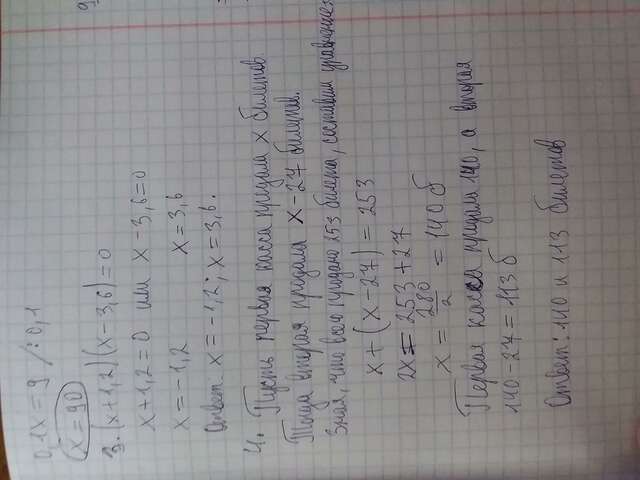 0,1x = 9 /:0,1
x = 90
3. (x+1,2)(x-3,6)=0
x+1,2=0 или x-3,6=0
x=-1,2 x=3,6
Ответ: x=-1,2; x=3,6.
4. Пусть первая касса продала x билетов
Тогда вторая продала x-27 билетов.
Зная, что всего продано 253 билета, составим уравнение:
x+(x-27)=253
2x=253+27
x = 280/2 = 140 б
Первая касса продала 140, а вторая
140-27=113 б
Ответ: 140 и 113 билетов